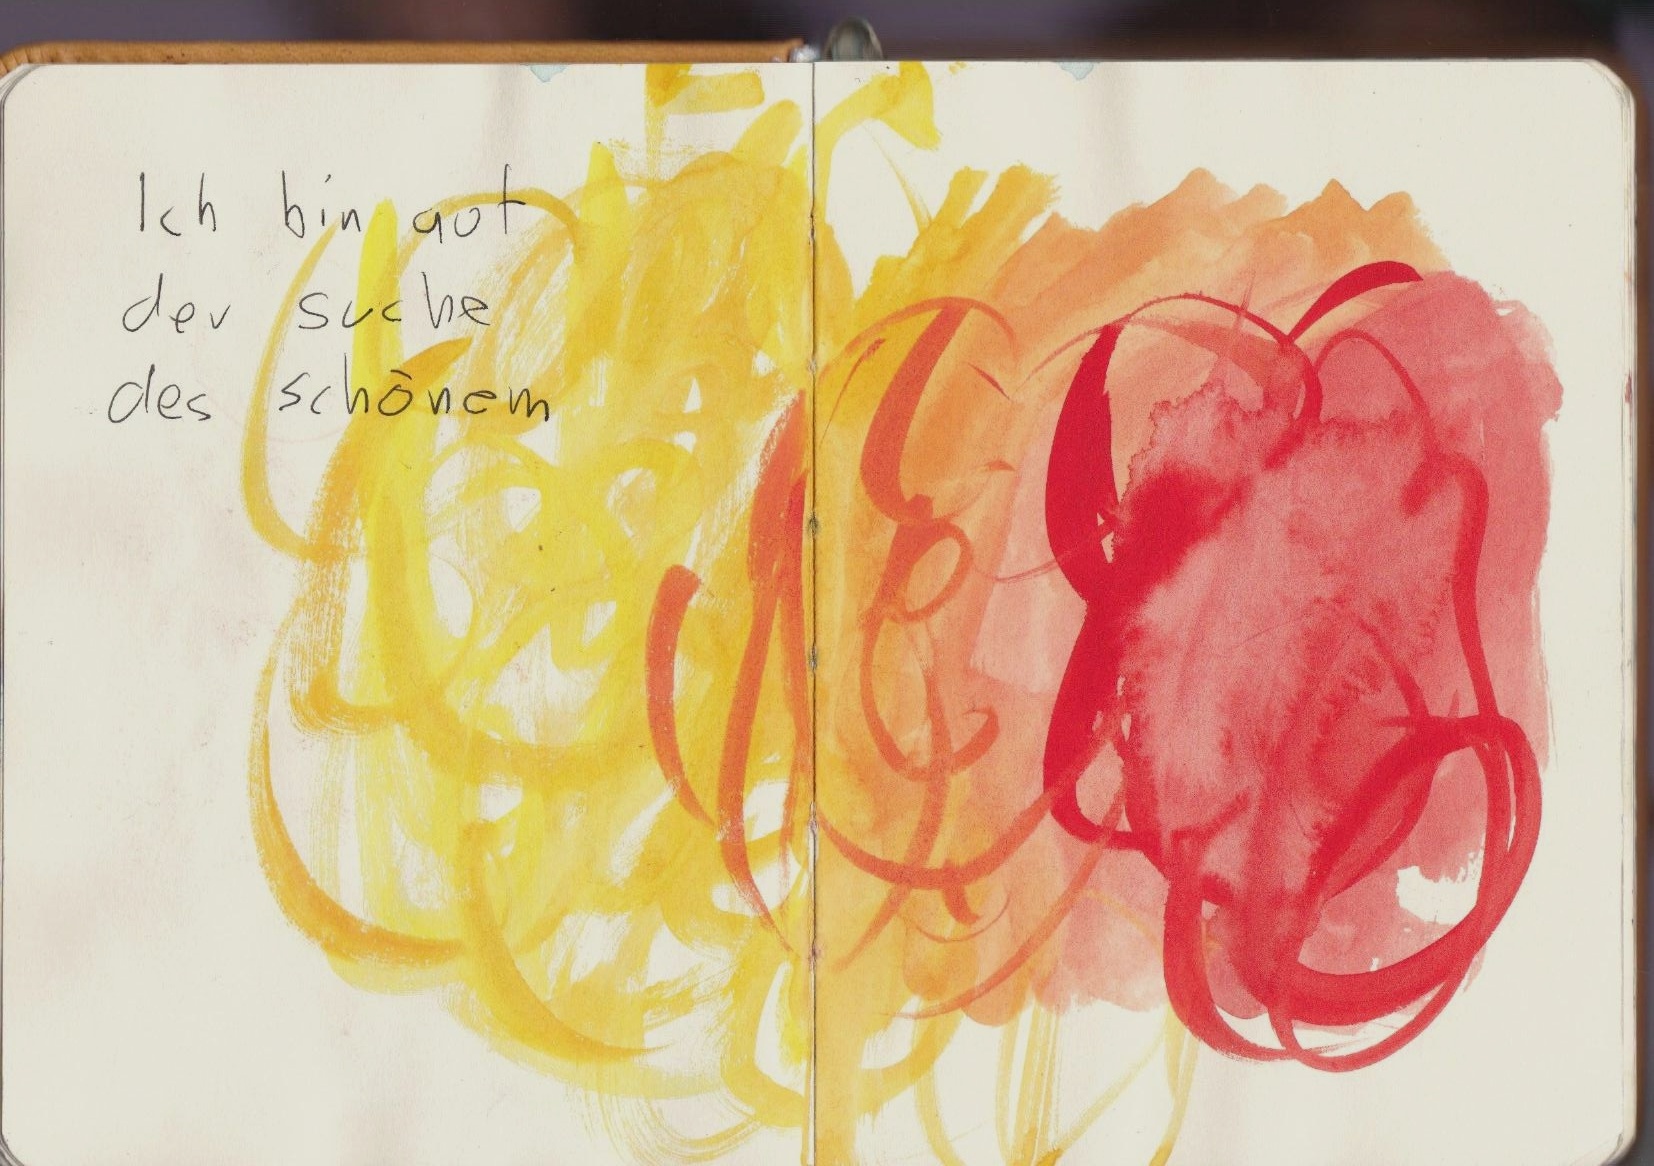 Ich bin auf
der suche
des schönem